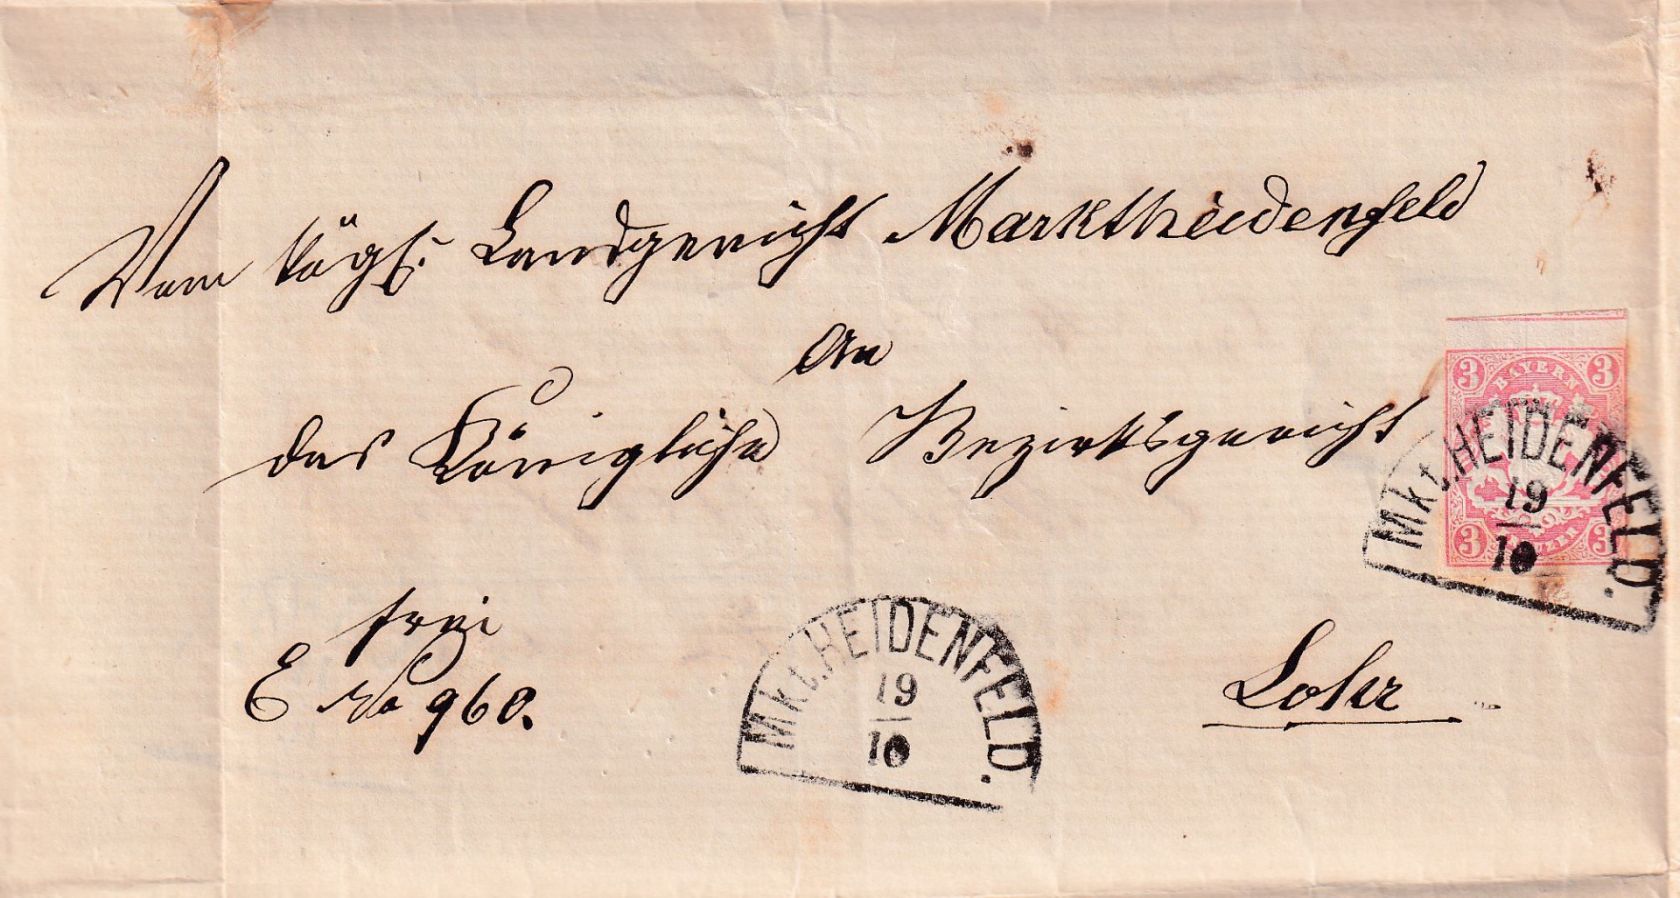 Vom kögl. Landgericht Marktheidenfeld
An
das Königliche Bezirksgericht
frei
E No 960.
Lohr
3 BAYERN 3
3 3
Mkt.HEIDENFELD.
19
10
Mkt.HEIDENFELD.
19
10